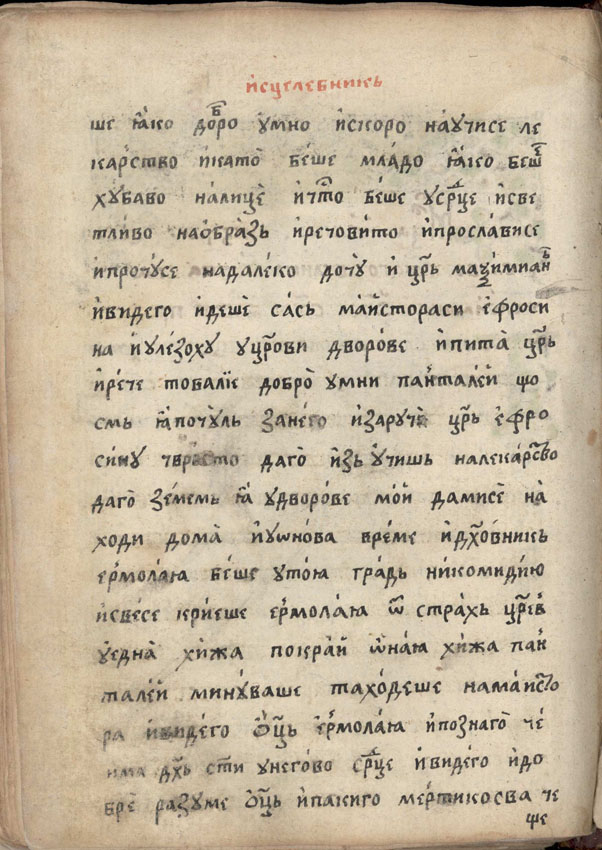 и҆сцеле́бникь
ше ꙗ҆́ко до́бро ᲂу҆мно и҆скоро нaучи́се ле
ка́рство и҆като̀ бе́ше мла́до ꙗ҆́ко бе́ше
хꙋ́баво налицѐ и҆што̀ бе́ше ᲂу҆ср҃це и҆све
тли́во наѻ҆бра́зь и҆речови́то и҆просла́висе
и҆прочꙋ́се надале́ко дочꙋ̀ и҆ цр҃ь маѯимиа́нь
и҆ви́дего и҆де́ше са́сь ма́йстораси є҆фроси
на и҆ꙋле́зохꙋ ᲂуцр҃ови дво́рове и҆пи́та цр҃ь
и҆ре́че това́лїе добро̀ ᲂумни пан́тале́й що
смь ꙗ҆́ почꙋ́ль за́него и҆зарꙋчѐ цр҃ь є҆фро
си́нꙋ тврьсто даго̀ и҆зь ᲂу҆́чишь налека́рство
даго̀ зе́мемь ꙗ҆́ ᲂудво́рове мо́й дамисѐ на
ходи до́ма и҆ꙋѡно́ва вре́ме и҆дх҃о́вникь
ермола́ю бе́ше ᲂуто́ю гра́дь никоми́дїю
и҆све́се крие́ше ермола́ю ѿ стра́хь цр҃евь
ᲂу҆една̀ хи́жа покра́й ѡ҆на́ю хи́жа пан́
тале́й минꙋ́ваше тахо́деше нама́йсто
ра и҆ви́дего ѻ҆ц҃ь ермола́ю и҆позна́го че
има дх҃ь ст҃и ᲂунегово ср҃це и҆ви́дего и҆до
брѐ разꙋме ѻ҆ц҃ь и҆па́киго ме́ртикосва че
ѱе